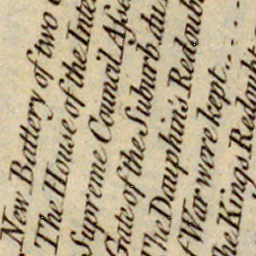 New Battery of two
The House of the Inte
Supreme Council Asse
Gate of the Suburb
The Dauphin's Redoub
of War were kept.....
The Kings Redoubt